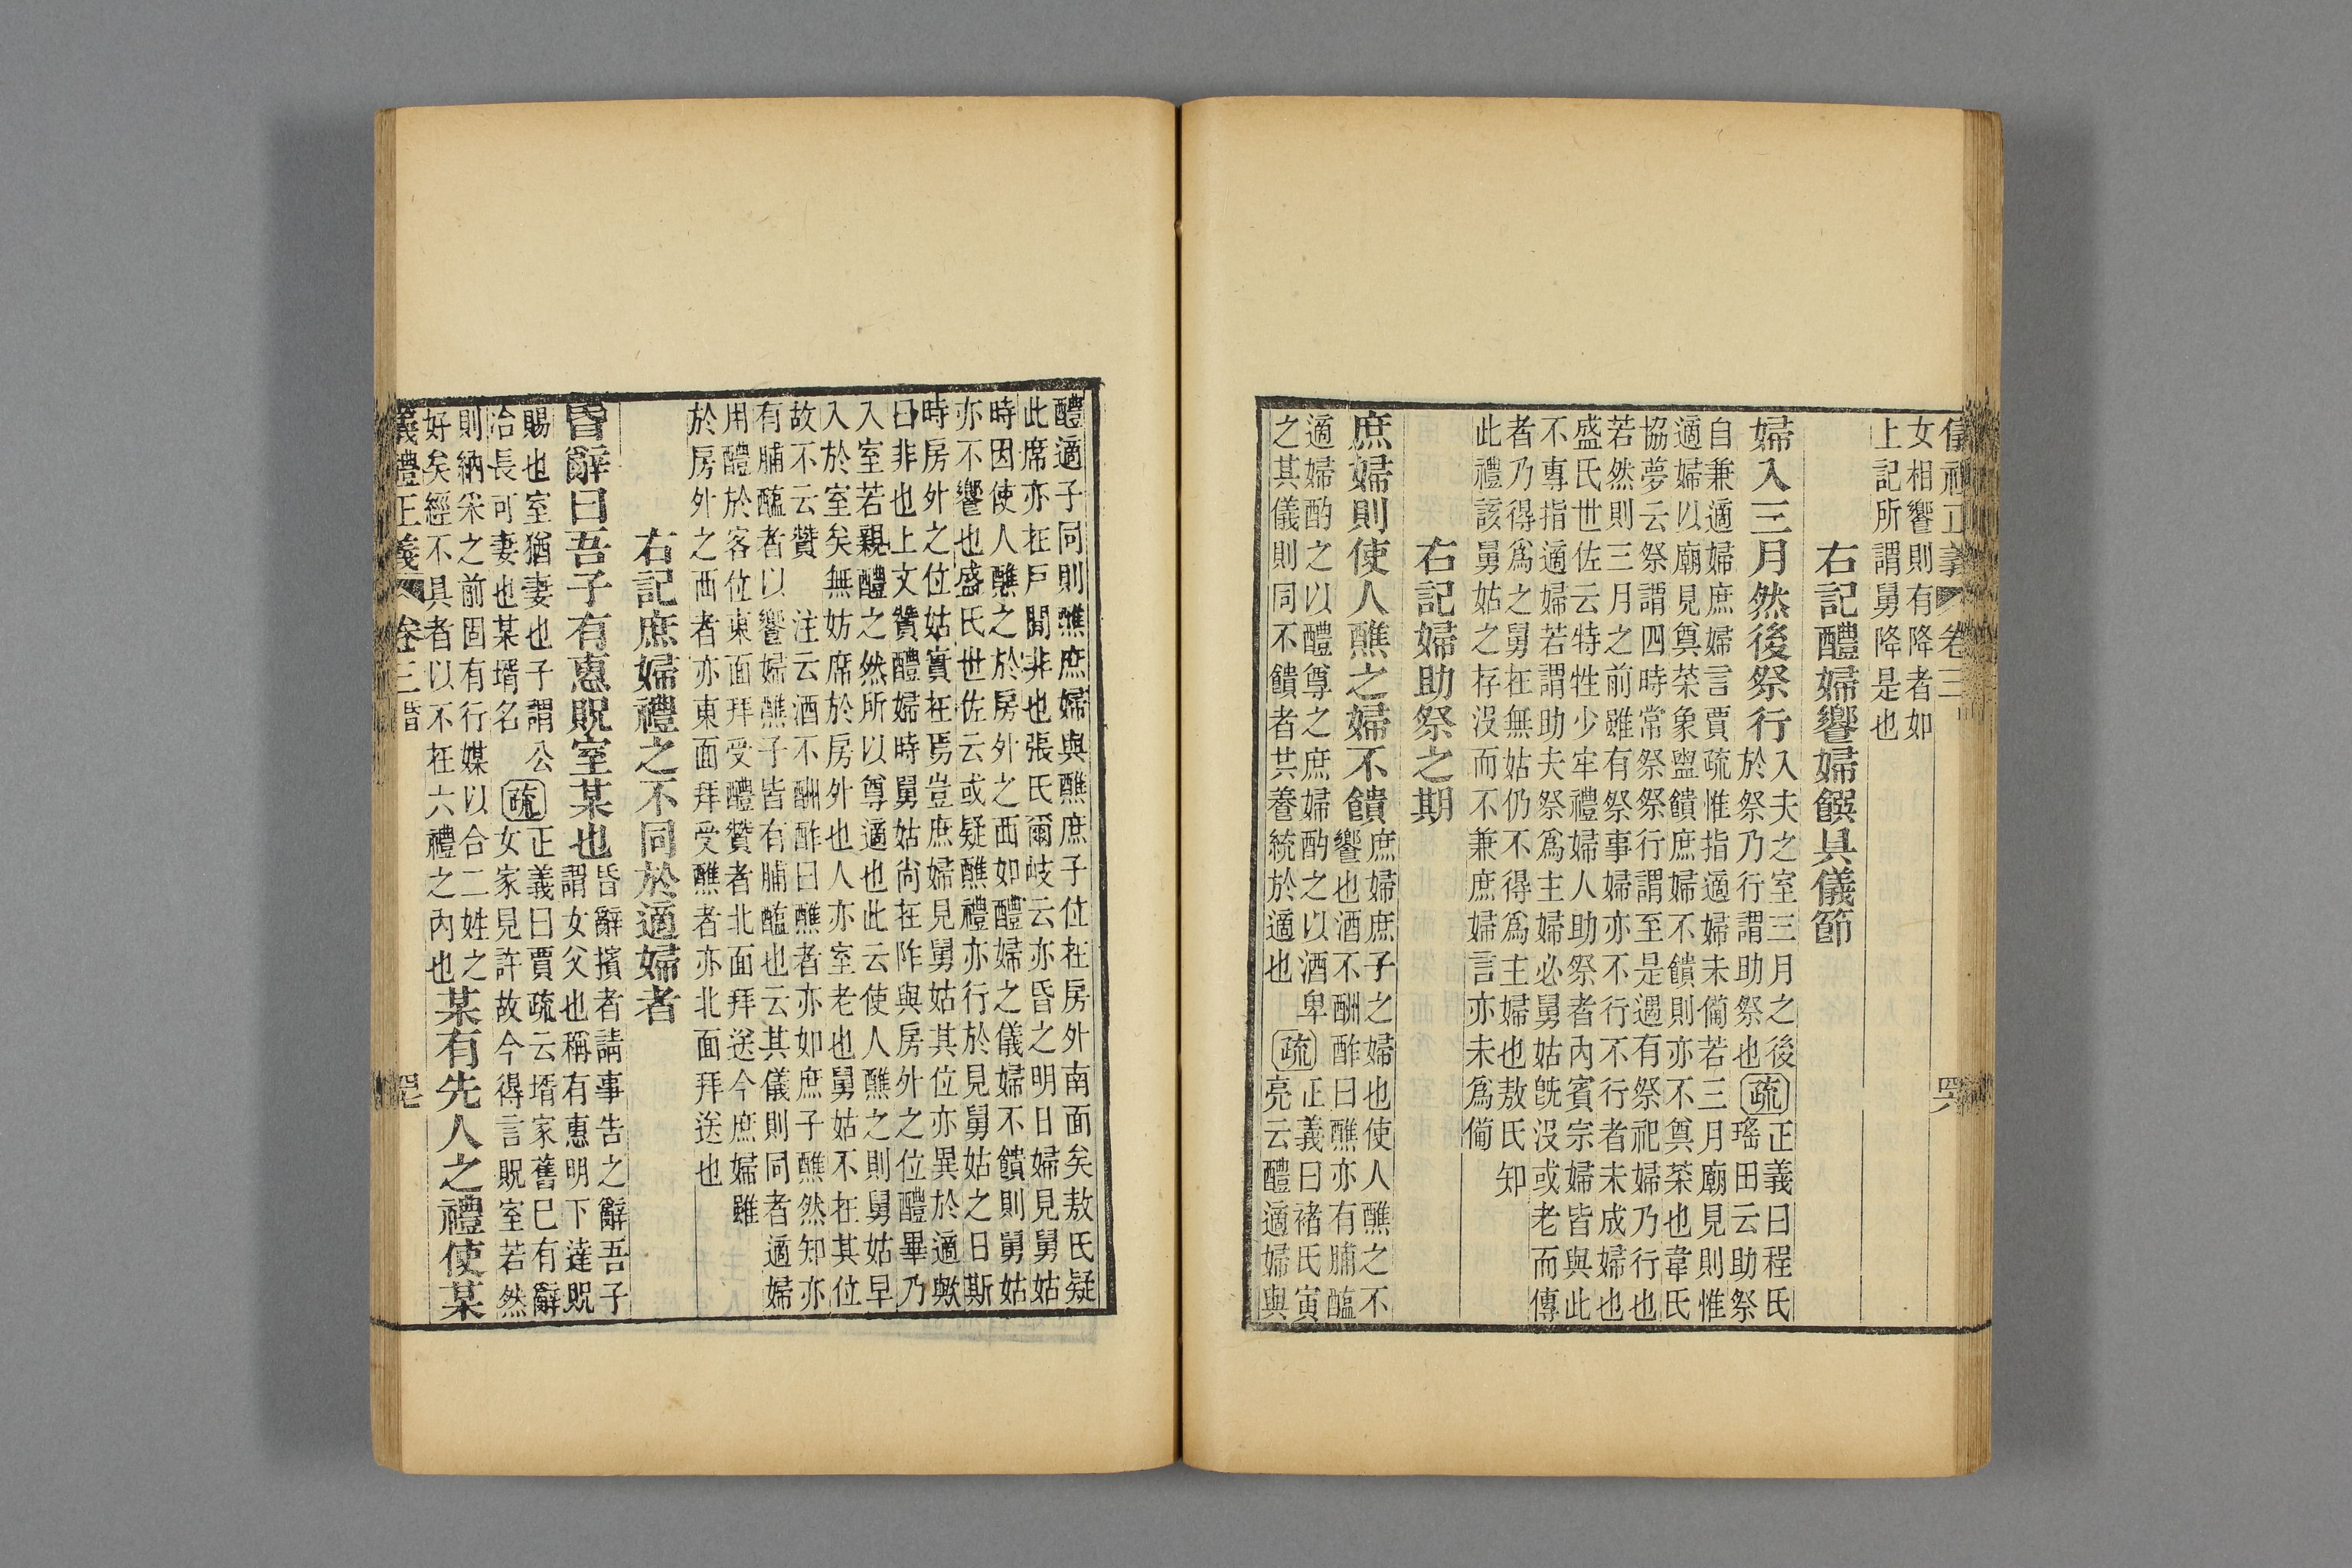 儀禮正義 卷三
女相饗則有降者如
上記所謂舅降是也
右記醴婦饗婦饌具儀節
婦入三月然後祭行
入夫之室三月之後
於祭乃行謂助祭也
疏
正義曰程氏
瑤田云助祭
自兼適婦庶婦言賈疏惟指適婦未備若三月廟見則惟
適婦以廟見奠菜象盥饋庶婦不饋則亦不奠菜也韋氏
協夢云祭謂四時常祭祭行謂至是遇有祭祀婦乃行也
若然則三月之前雖有祭事婦亦不行不行者未成婦也
盛氏世佐云特牲少牢禮婦人助祭者內賓宗婦皆與此
不專指適婦若謂助夫祭爲主婦必舅姑旣沒或老而傳
者乃得爲之舅在無姑仍不得爲主婦也敖氏知
此禮該舅姑之存沒而不兼庶婦言亦未爲備
右記婦助祭之期
庶婦則使人醮之婦不饋
庶婦庶子之婦也使人醮之不
饗也酒不酬酢曰醮亦有脯醢
適婦酌之以醴尊之庶婦酌之以酒卑
之其儀則同不饋者共養統於適也
疏
正義曰褚氏寅
亮云醴適婦與
醴適子同則醮庶婦與醮庶子位在房外南面矣敖氏疑
此席亦在戶閒非也張氏爾岐云亦昏之明日婦見舅姑
時因使人醮之於房外之西如醴婦之儀婦不饋則舅姑
亦不饗也盛氏世佐云或疑醮禮亦行於見舅姑之日斯
時房外之位姑實在焉豈庶婦見舅姑其位亦異於適歟
曰非也上文贊醴婦時舅姑尚在阼與房外之位醴畢乃
入室若親醴之然所以尊適也此云使人醮之則舅姑早
入於室矣無妨席於房外也人亦室老也舅姑不在其位
故不云贊 注云酒不酬酢曰醮者亦如庶子醮然知亦
有脯醢者以饗婦醮子皆有脯醢也云其儀則同者適婦
用醴於客位東面拜受醴贊者北面拜送今庶婦雖
於房外之西者亦東面拜受醮者亦北面拜送也
右記庶婦禮之不同於適婦者
昏辭曰吾子有惠貺室某也
昏辭擯者請事告之辭吾子
謂女父也稱有惠明下達貺
賜也室猶妻也子謂公
冶長可妻也某壻名
疏
正義曰賈疏云壻家舊已有辭
女家見許故今得言貺室若然
則納采之前固有行媒以合二姓之
好矣經不具者以不在六禮之內也
某有先人之禮使某
儀禮正義 卷三 昏